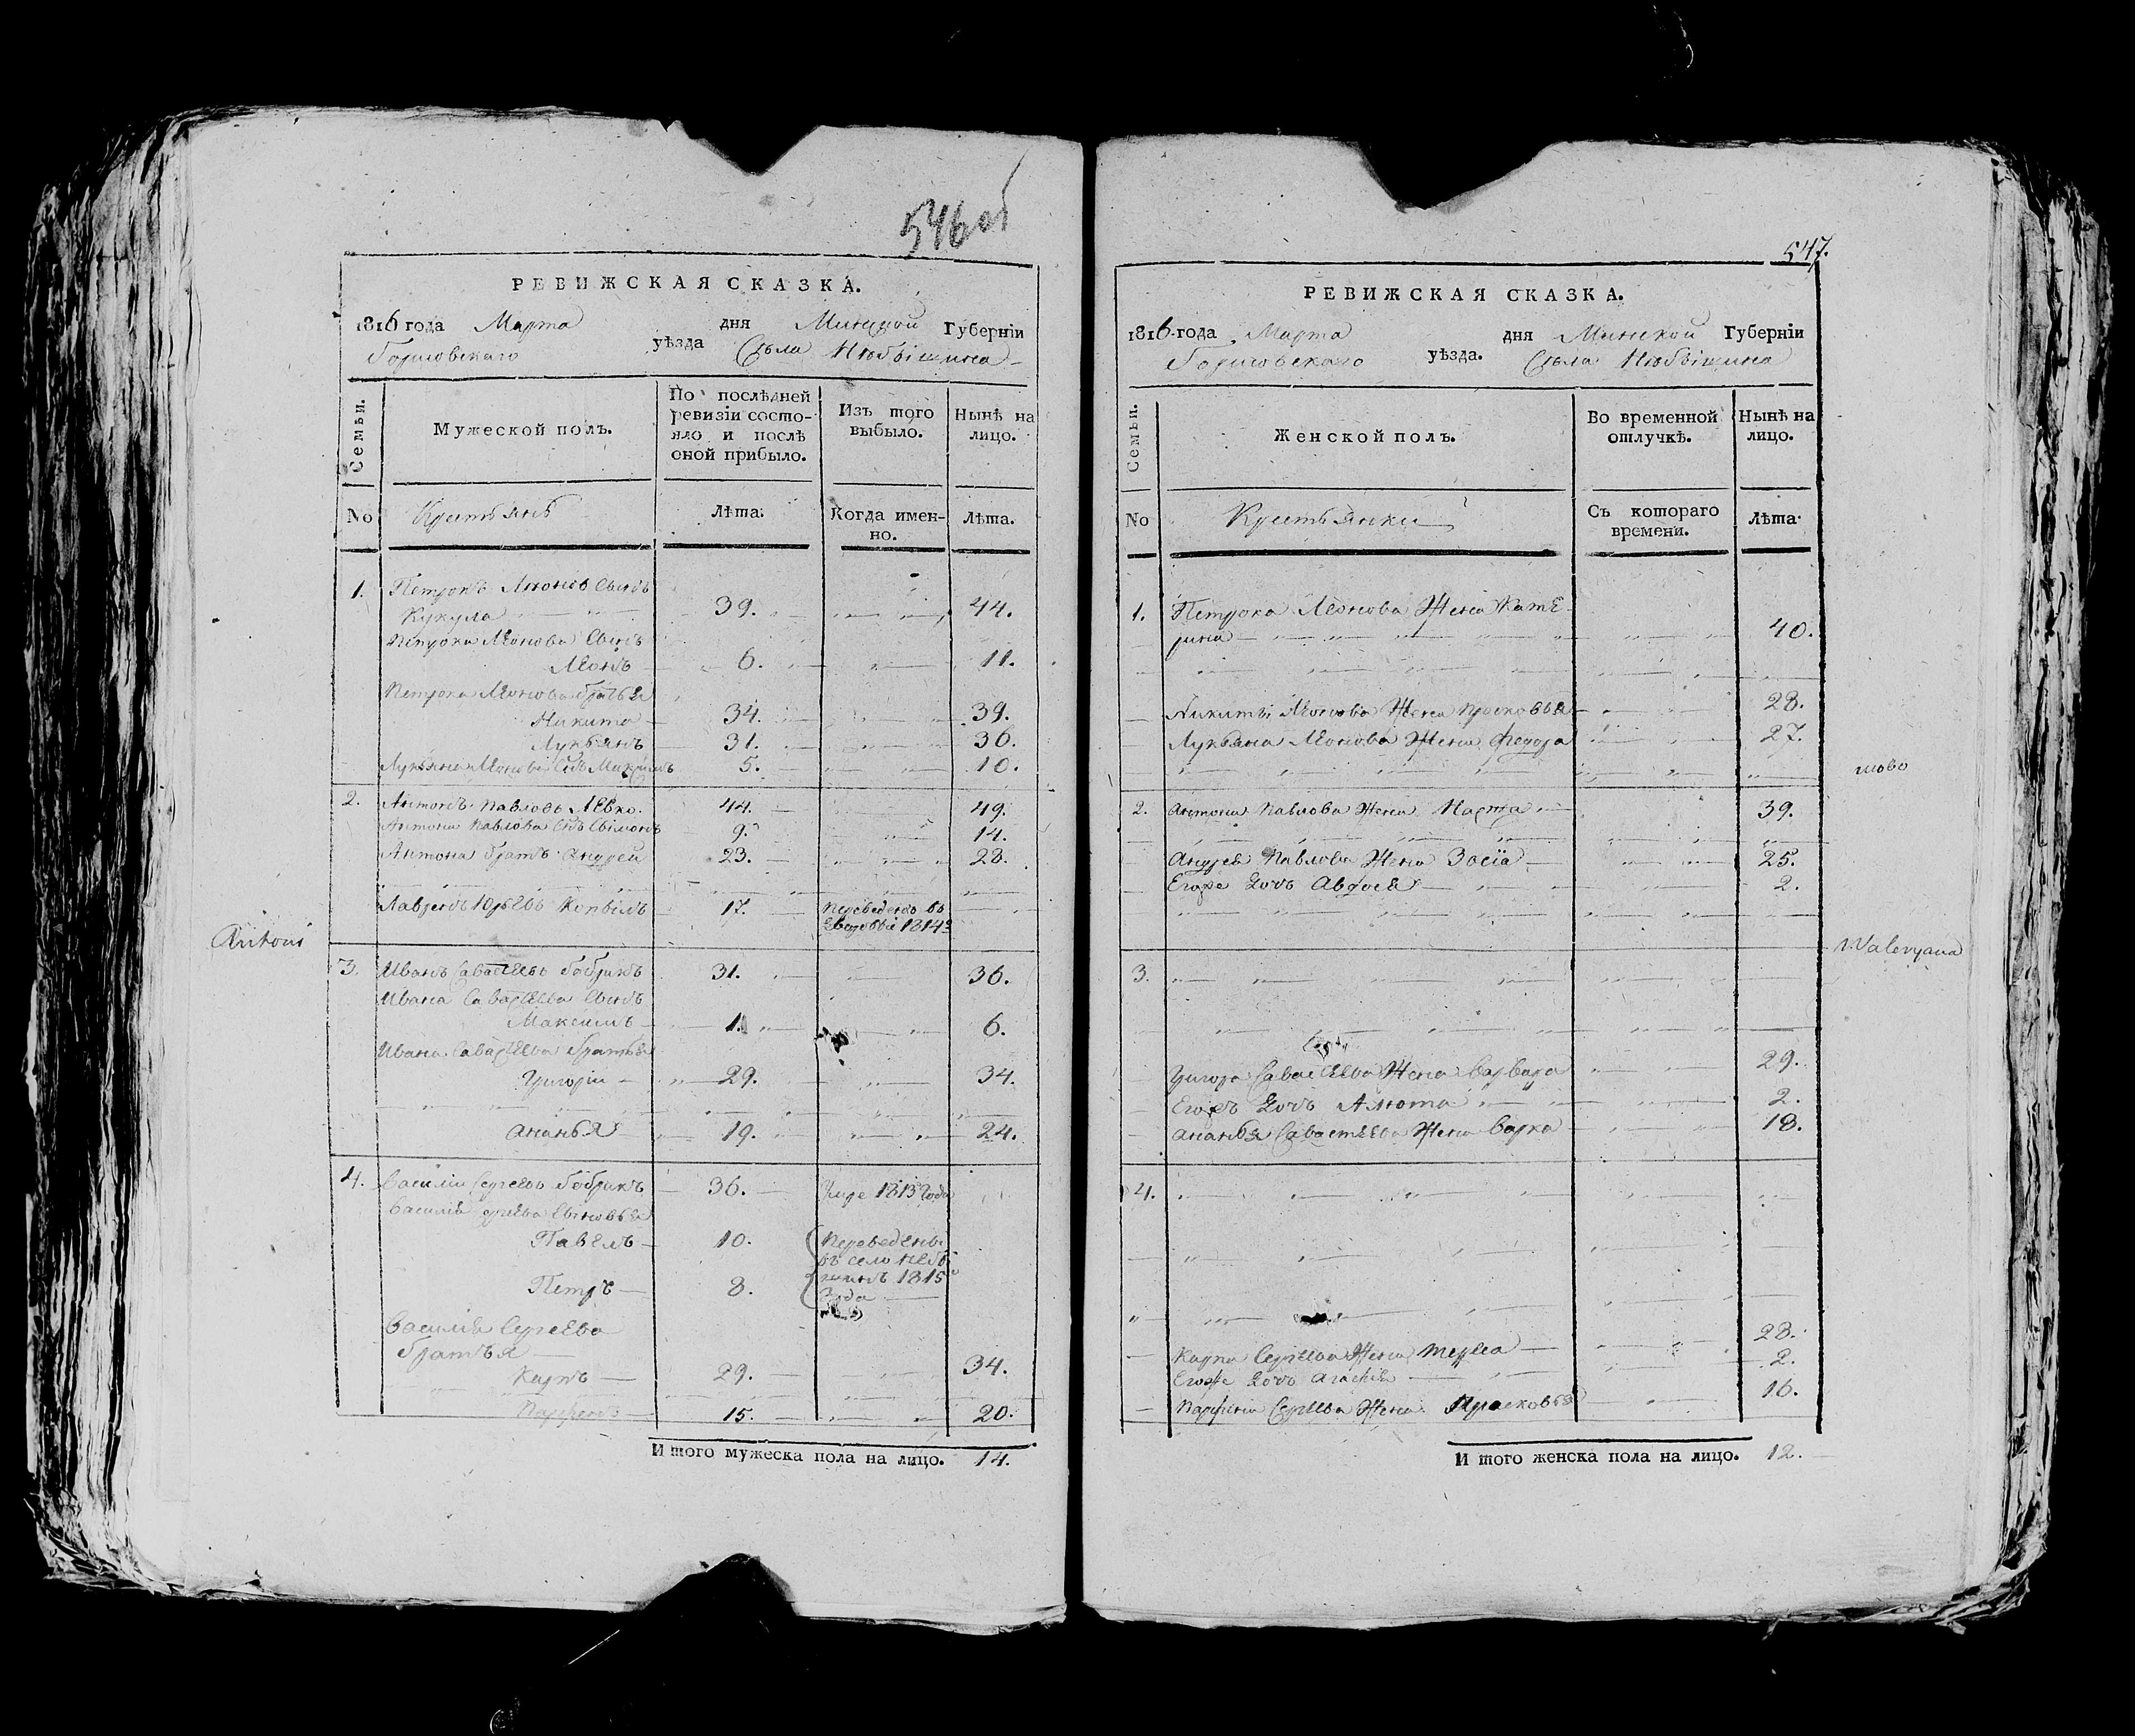 546об
РЕВИЖСКАЯ СКАЗКА.
1816 года Марта дня Минской Губерніи
Борисовскаго уѣзда Села
Семьи.
Мужеской полъ.
По послѣдней ревизіи состо-
яло и послѣ
оной прибыло.
Изъ того
выбыло.
Нынѣ на
лицо.
No
Крестьянъ
Лѣта.
Когда имен-
но.
Лѣта.
1. Петрокъ Леоновъ Сынъ
Кукула 39. 44.
Петрока Леонова Сынъ
Леонъ 6. 11.
Петрока Леонова братья
Никита 34. 39.
Лукьянъ 31. 36.
Лукьяна Леонова Снъ Максимъ 5. 10.
2. Антонъ Павловъ Левко. 44. 49.
Антона Павлова Снъ Сымонъ 9. 14.
Антона братъ Андрей 23. 28.
Лавренъ Юрьевъ 17. Переведенъ въ
1814г
Antoni
3. Иванъ Савастеевъ Бобрикъ 31. 36.
Ивана Савастеева Сынъ
Максимъ 1. 6.
Ивана Савастеева братья
Григорій 29. 34.
Ананья 19. 24.
4. Василій Сергеевъ Бобрикъ 36. Умре 1813 года
Василія Сергеева Сыновья
Павелъ 10. Переведены
въ село
Петръ 8. 1815
года
Василія Сергеева
братья
Карпъ 29. 34.
Парфенъ 15. 20.
И того мужеска пола на лицо. 14.
547.
РЕВИЖСКАЯ СКАЗКА.
1816 года Марта дня Минской Губерніи
Борисовскаго уѣзда. Села
Семьи.
Женской полъ.
Во временной
отлучкѣ.
Нынѣ на
лицо.
No
Крестьянки
Съ котораго
времени.
Лѣта.
1. Петрока Леонова Жена Кате-
рина 40.
Никиты Леонова Жена Просковья 28.
Лукьяна Леонова Жена Федора 27.
2. Антона Павлова Жена Марта 39.
Андрея Павлова Жена Зосія 25.
Егоже Дочь Авдося 2.
Waleryana
3.
Григора Савастеева Жена Варвара 29.
Егожъ Дочь Анюта 2.
Ананья Савастеева Жена Варка 18.
4.
Карпа Сергеева Жена Тереса 28.
Егоже Дочь Агасія 2.
Парфена Сергеева Жена Прасковья 16.
И того женска пола на лицо. 12.